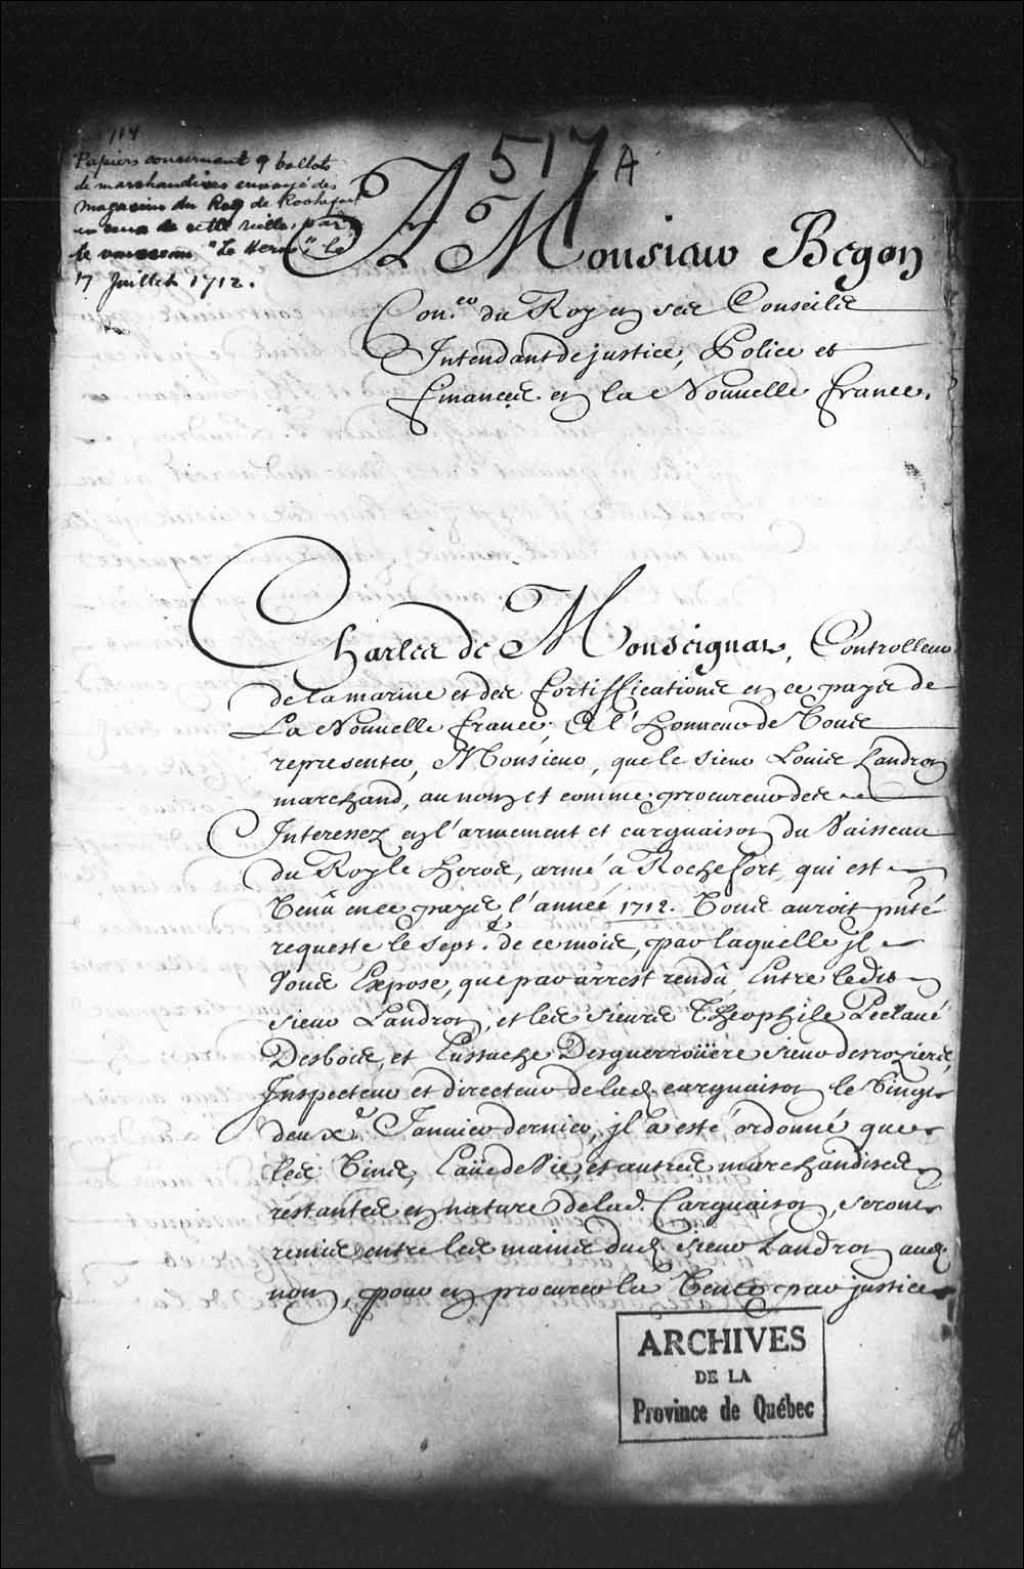 1714
Papiers concernant 9 ballots
de marchandises envoyé des
magasins du Roy de Rochefort
en ceux de cette ville, par
le vaisseau "Le Heros", le
7 Juillet 1712.
517 A
A Monsieur Begon
Con.er du Roy en ses Conseils
Intendant de justice, Police et
finances en la Nouuelle france.
Charles de Monseignat, Controlleur
de la marine et des fortiffications en ce pays de
La Nouuelle france, A l'honneur de Vous
representer, Monsieur, que le sieur Louis Landron
marchand, au nom et comme procureur des
Interessez en l'armement et carguaison du Vaisseau
du Roy le heros, armé a Rochefort, qui est
Venû en ce pays l'année 1712. Vous auroit pnté
requeste le sept.e de ce mois, par laquelle jl
Vous Expose, que par arrest rendû Entre ledit
sieur Landron, et les sieurs Theophile
Desbois, et Eustache sieur desroziers,
Inspecteur et directeur de lad. carguaison le Vingt
deux.e Januier dernier, jl a esté ordonné que
les Vins, Eaüe de Vie, et autres marchandises
restantes en nature de lad. Carguaison, seront
remis entre les mains dud. sieur Landron aud.
nom, pour en procurer la Vente par justice
ARCHIVES
DE LA
Province de Québec